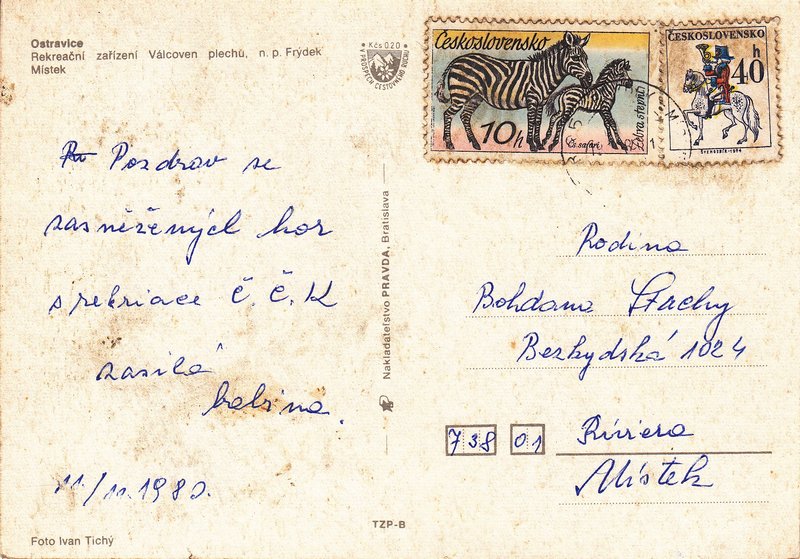 Ostravice
Rekreační zařízení Válcoven plechu, n. p. Frýdek
Místek
Kčs 0,20
V PROSPĚCH CESTOVNÉHO RUCHU
Pozdrav se
zasněžených hor
s rekriace Č. Č. K
zasílá
babina.
11/11. 1980.
Foto Ivan Tichý
Nakladatelstvo PRAVDA, Bratislava
TZP-B
Československo
10h
Čs. safari
Zebra stepní
ČESKOSLOVENSKO
40 h
Rodina
Bohdana Stachy
Bezkydská 1024
738 01
Riviera
Místek